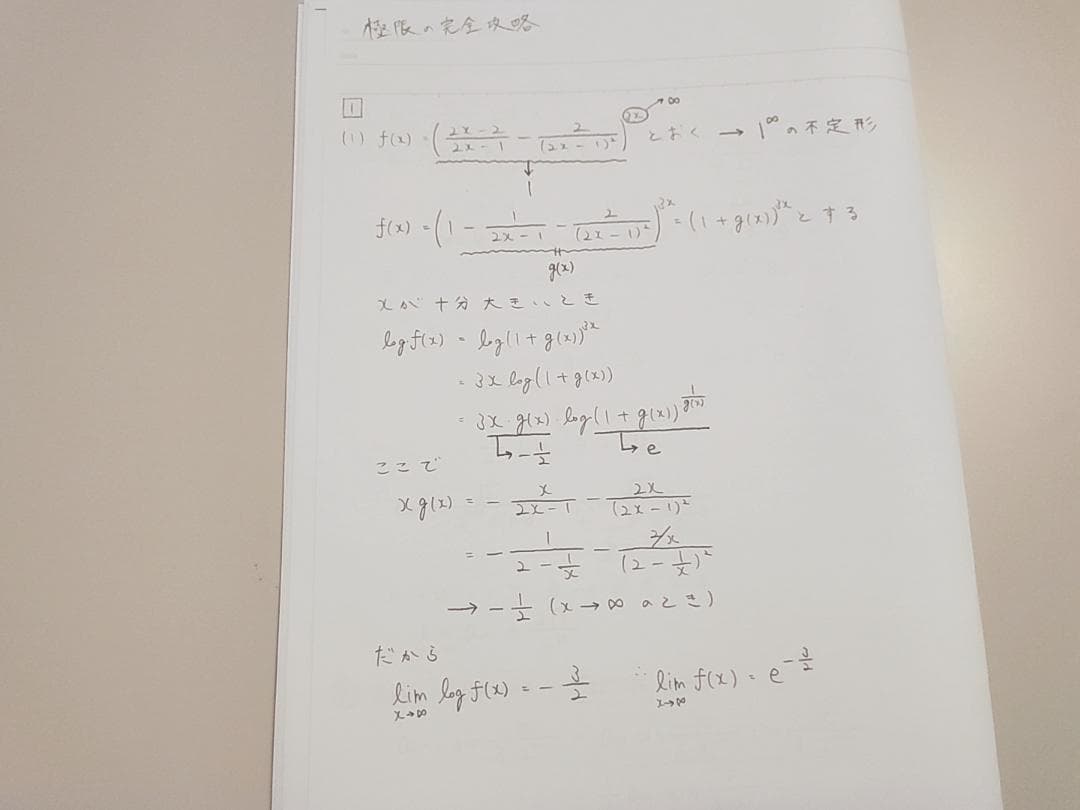 極限の完全攻略
1
(1) f(x) = ( (2x-2)/(2x-1) - 2/(2x-1)² )^(3x) とおく → 1^∞ の不定形
→∞
↓
1
f(x) = ( 1 - 1/(2x-1) - 2/(2x-1)² )^(3x) = (1+g(x))^(3x) とする
g(x)
xが十分大きいとき
log f(x) = log(1+g(x))^(3x)
= 3x log(1+g(x))
= 3x・g(x)・log(1+g(x))^(1/g(x))
↳ -1/2 ↳ e
ここで
xg(x) = - x/(2x-1) - 2x/(2x-1)²
= - 1/(2-1/x) - (2/x)/(2-1/x)²
→ -1/2 (x→∞のとき)
だから
lim x→∞ log f(x) = -3/2 ∴ lim x→∞ f(x) = e^(-3/2)